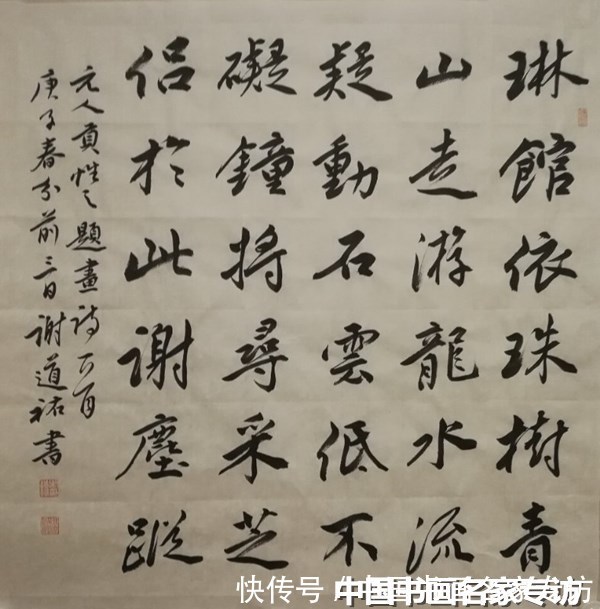 琳館依珠樹青
山走游龍水流
疑動石雲低不
礙鐘將尋采芝
侶於此謝塵蹤
元人貢性之題畫詩
庚子春分前三日謝道祐書
快传号 /
中国书画名家专访